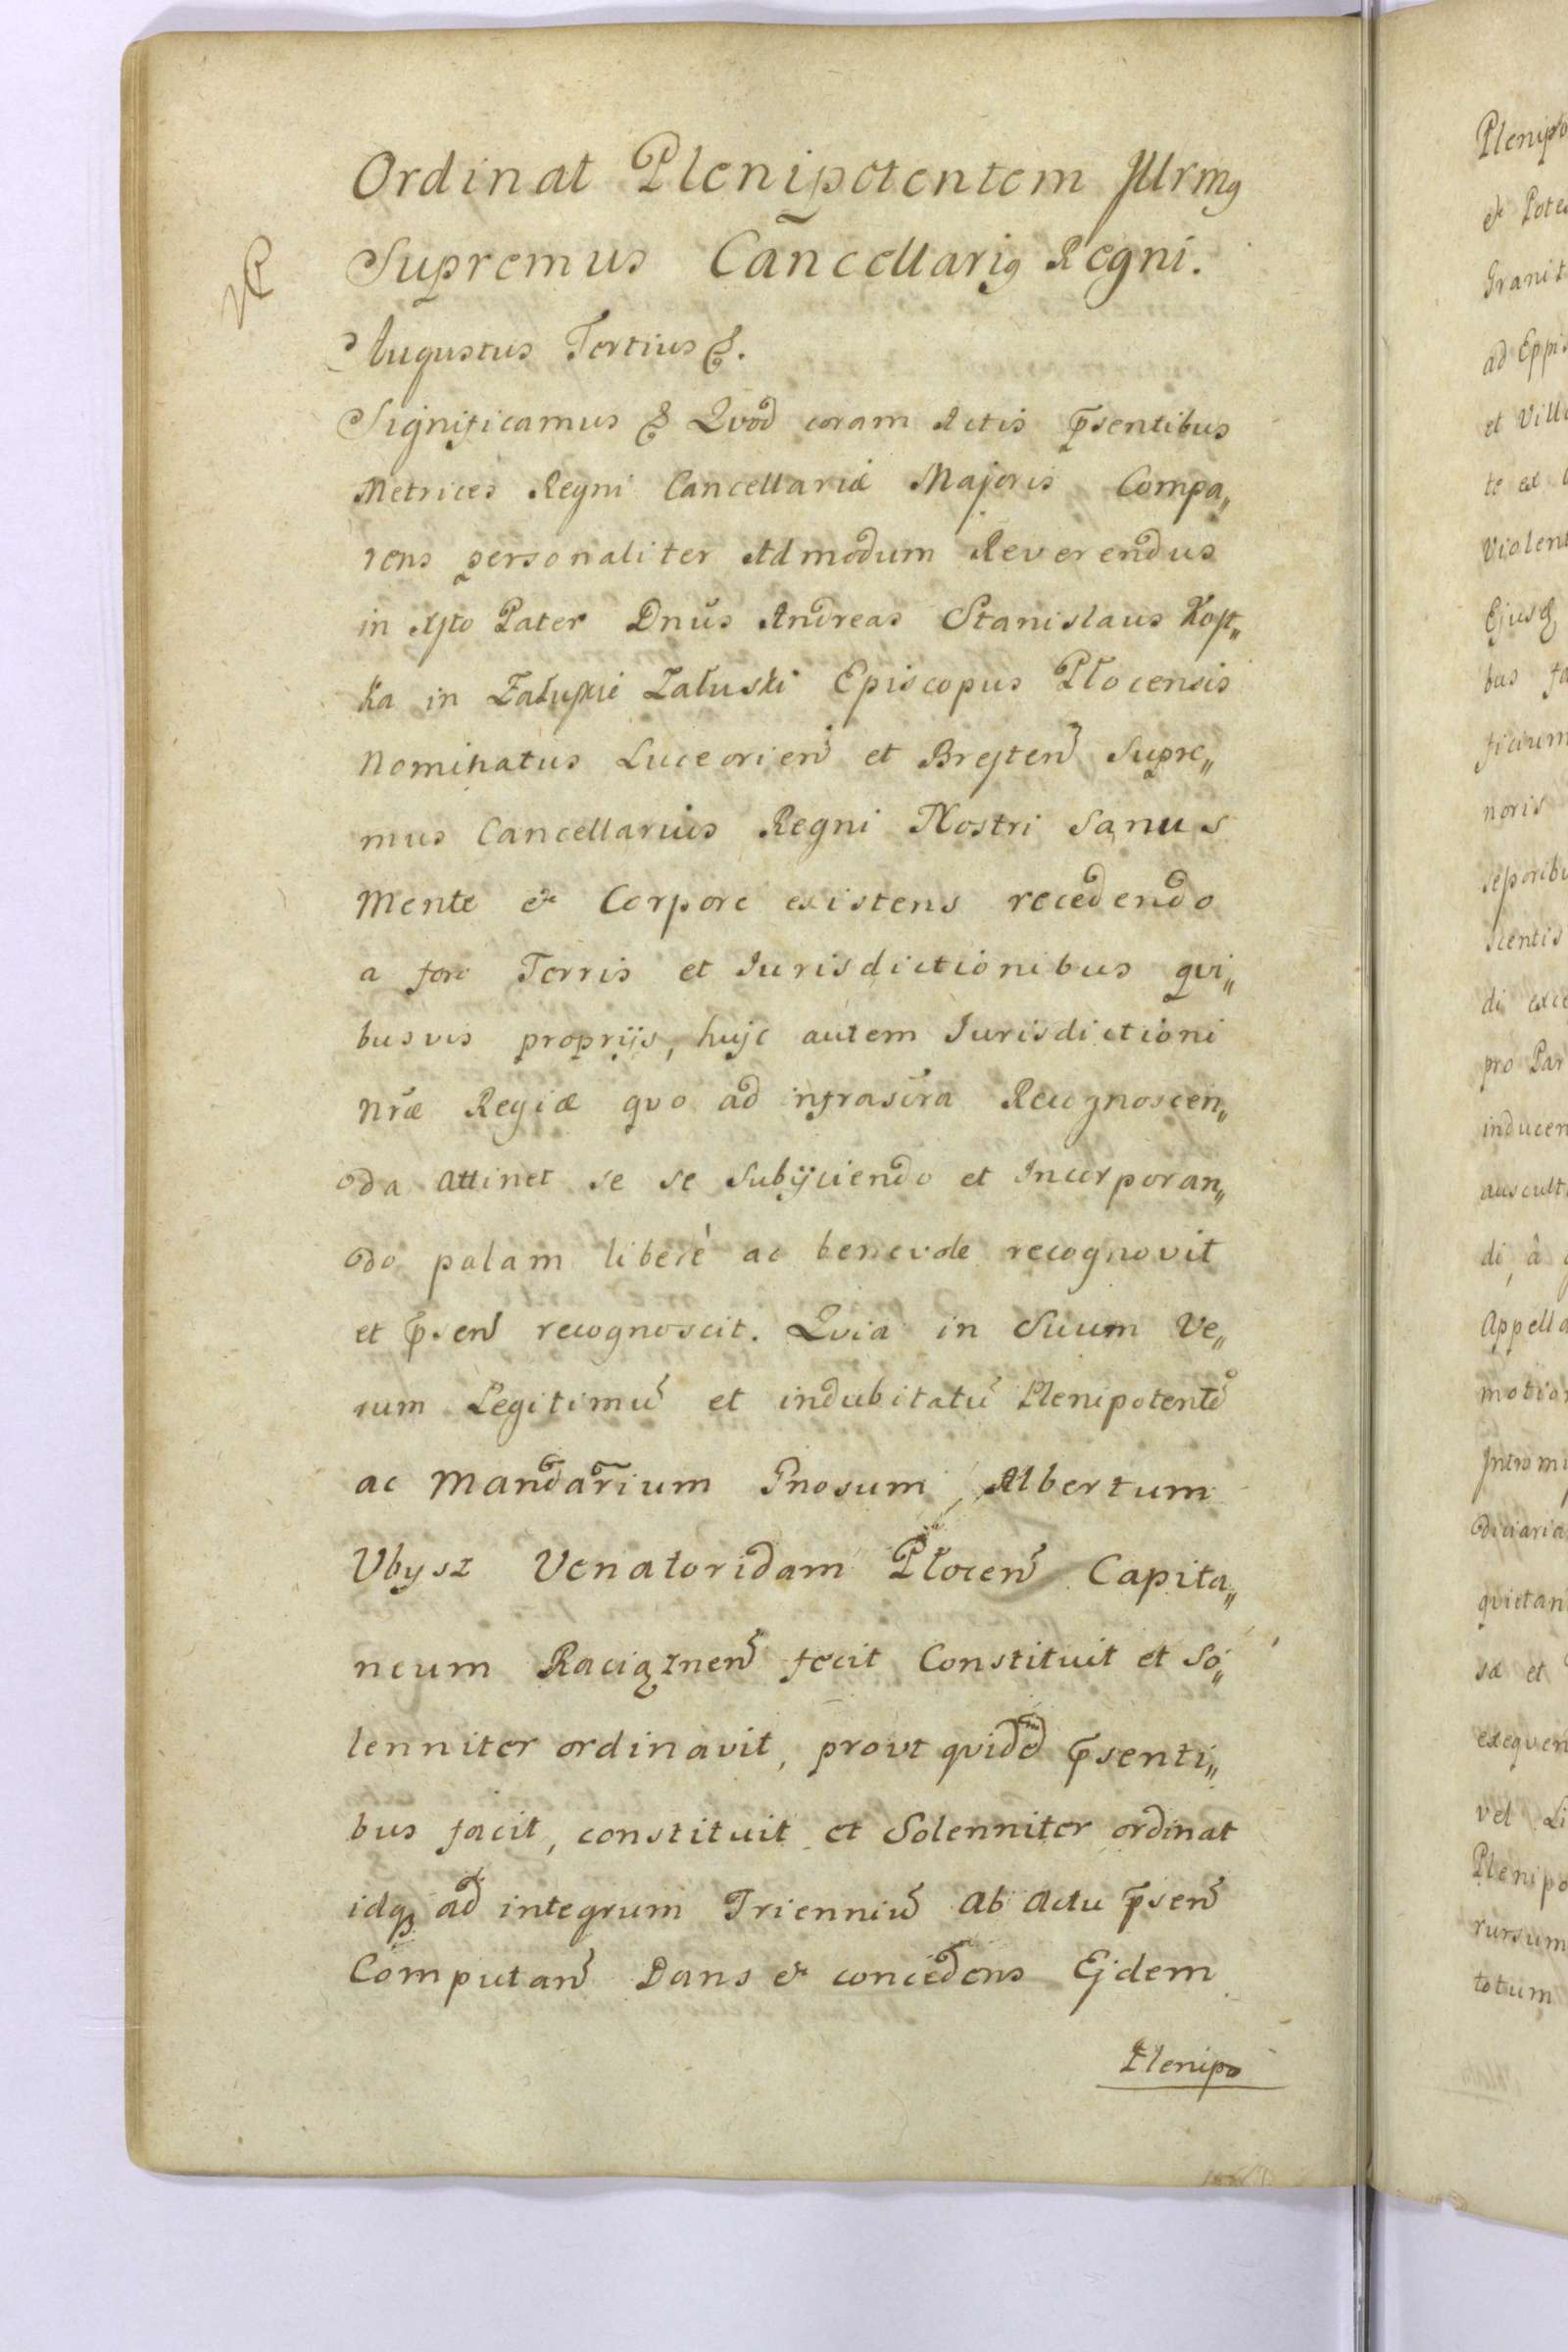 Ordinat Plenipotentem Jllrmꝯ
Supremus Cancellariꝯ Regni.
Augustus Tertius &.
Significamus & Qvod coram Actis p̄sentibus
Metrices Regni Cancellariæ Majoris Compa„
rens personaliter Admodum Reverendus
in Xſto Pater Dnūs Andreas Stanislaus Koſt„
ka in Załuſkie Załuski Episcopus Płocensis
Nominatus Luceorien̄ et Breſten̄ Supre„
mus Cancellarius Regni Nostri Sanus
Mente & Corpore existens recedendo
a foro Terris et Jurisdictionibus qvi„
busvis proprijs, hujc autem Jurisdictioni
nr̄æ Regiæ qvo ad infrascr̄a Recognoscen„
da attinet se se Subijciendo et Incorporan„
do palam liberè ac benevole recognovit
et p̄sen̄ recognoscit. Qvia in Suum Ve„
rum Legitimū et indubitatū Plenipotentē
ac Mandarium Gnosum Albertum
Ubysz Venatoridam Płocen̄ Capita„
neum Raciąznen̄ fecit Constituit et So„
lenniter ordinavit, provt qvidem p̄senti„
bus facit, constituit et Solenniter ordinat
idqꝫ ad integrum Trienniū ab Actu p̄sen̄
Computan̄ Dans & concedens Ejdem
Plenipo
Plenipo
& Pote
Granit
ad Eppis
et Vill
te ex
Violent
Ejusqꝫ
bus fa
ficium
noris
seporibu
scentis
di exce
pro Par
inducen
auscult
di, â
Appella
motion
Intromi
diciaria
qvietan
sæ et
exeqven
vel Li
Plenipo
rursum
totum